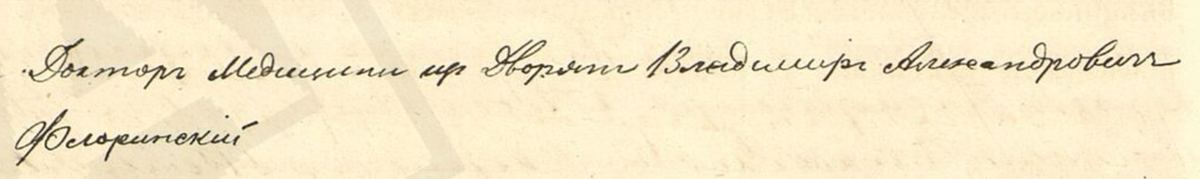 Докторъ Медицины изъ Дворянъ Владимиръ Александровичъ
Флоринскій